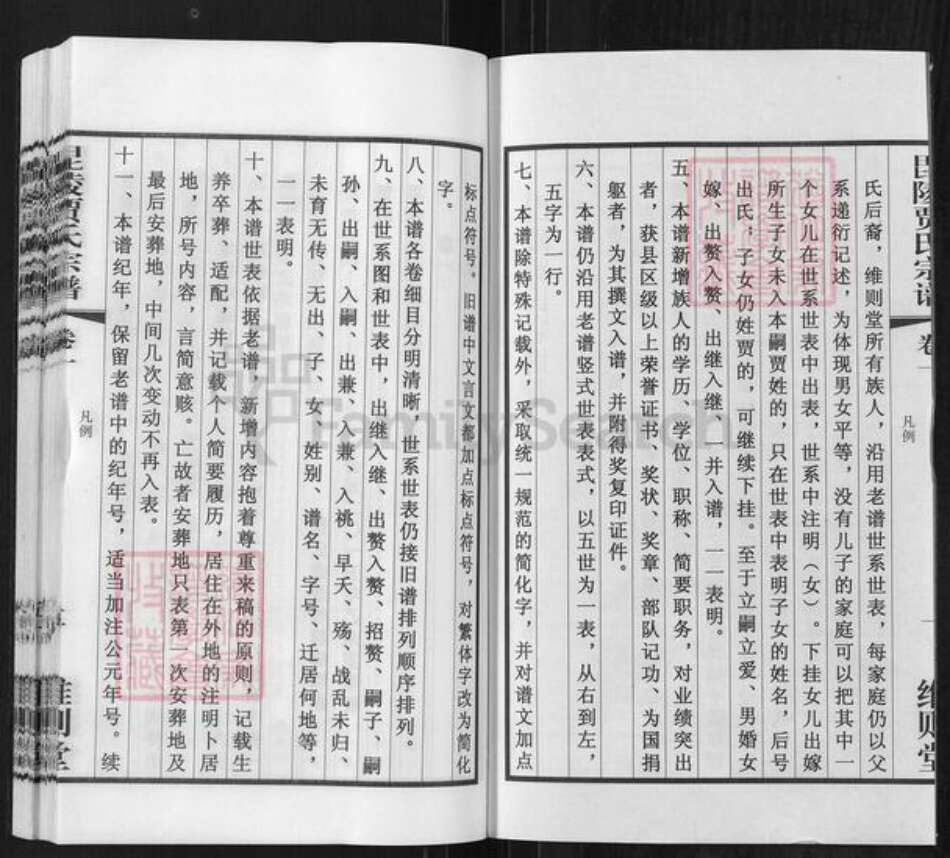 毗陵贾氏宗谱
卷一
凡例
一
维则堂
氏后裔，维则堂所有族人，沿用老谱世系世表，每家庭仍以父
系递衍记述，为体现男女平等，没有儿子的家庭可以把其中一
个女儿在世系世表中出表，世系中注明（女）。下挂女儿出嫁
所生子女未入本嗣贾姓的，只在世表中表明子女的姓名，后号
出氏；子女仍姓贾的，可继续下挂。至于立嗣立爱、男婚女
嫁、出赘入赘、出继入继、一并入谱，一一表明。
五、本谱新增族人的学历、学位、职称、简要职务，对业绩突出
者，获县区级以上荣誉证书、奖状、奖章、部队记功、为国捐
躯者，为其撰文入谱，并附得奖复印证件。
六、本谱仍沿用老谱竖式世表表式，以五世为一表，从右到左，
五字为一行。
七、本谱除特殊记载外，采取统一规范的简化字，并对谱文加点
标点符号。旧谱中文言文都加点标点符号，对繁体字改为简化
字。
八、本谱各卷细目分明清晰，世系世表仍接旧谱排列顺序排列。
九、在世系图和世表中，出继入继、出赘入赘、招赘、嗣子、嗣
孙、出嗣、入嗣、出兼、入兼、入祧、早夭、殇、战乱未归、
未育无传、无出、子、女、姓别、谱名、字号、迁居何地等，
一一表明。
十、本谱世表依据老谱，新增内容抱着尊重来稿的原则，记载生
养卒葬、适配，并记载个人简要履历，居住在外地的注明卜居
地，所号内容，言简意赅。亡故者安葬地只表第一次安葬地及
最后安葬地，中间几次变动不再入表。
十一、本谱纪年，保留老谱中的纪年号，适当加注公元年号。续
毗陵贾氏宗谱
卷一
凡例
维则堂
FamilySearch